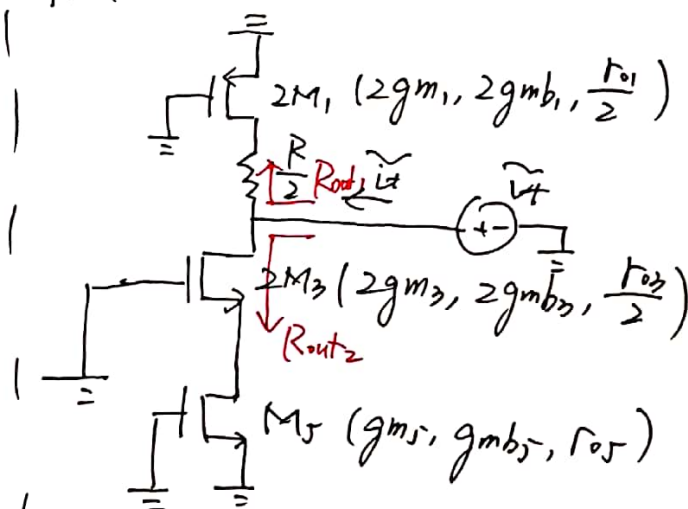 2M₁ (2gm₁, 2gmb₁, ro1/2)
R/2 Rout₁ it
vt
+ -
2M₃ (2gm₃, 2gmb₃, ro3/2)
Rout₂
M₅ (gm₅, gmb₅, ro5)